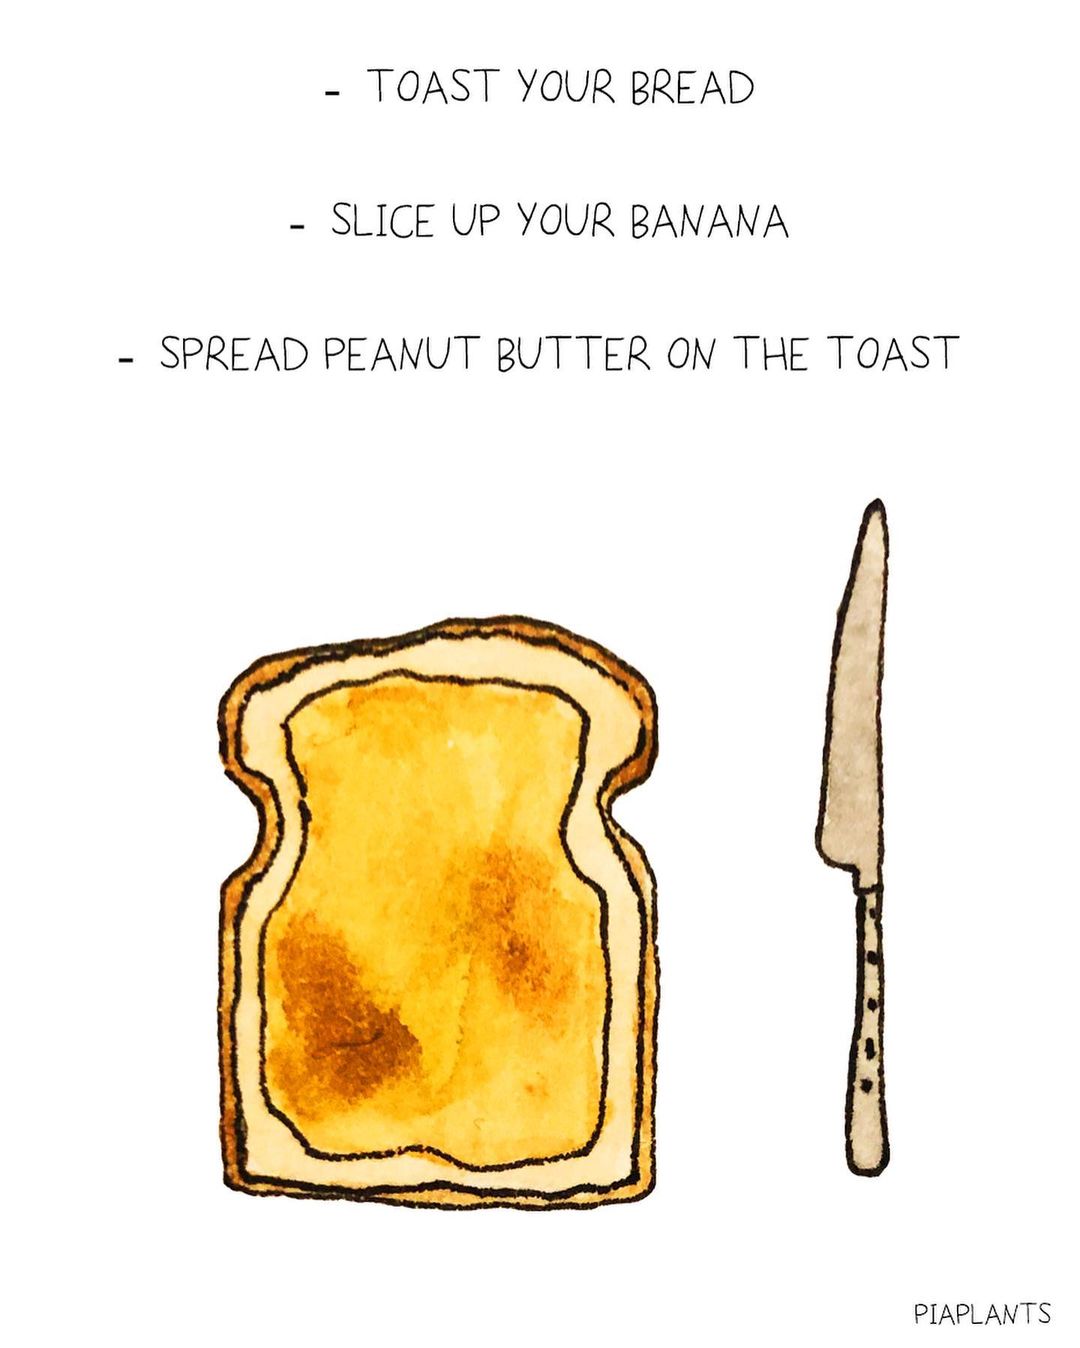 - TOAST YOUR BREAD
- SLICE UP YOUR BANANA
- SPREAD PEANUT BUTTER ON THE TOAST
PIAPLANTS